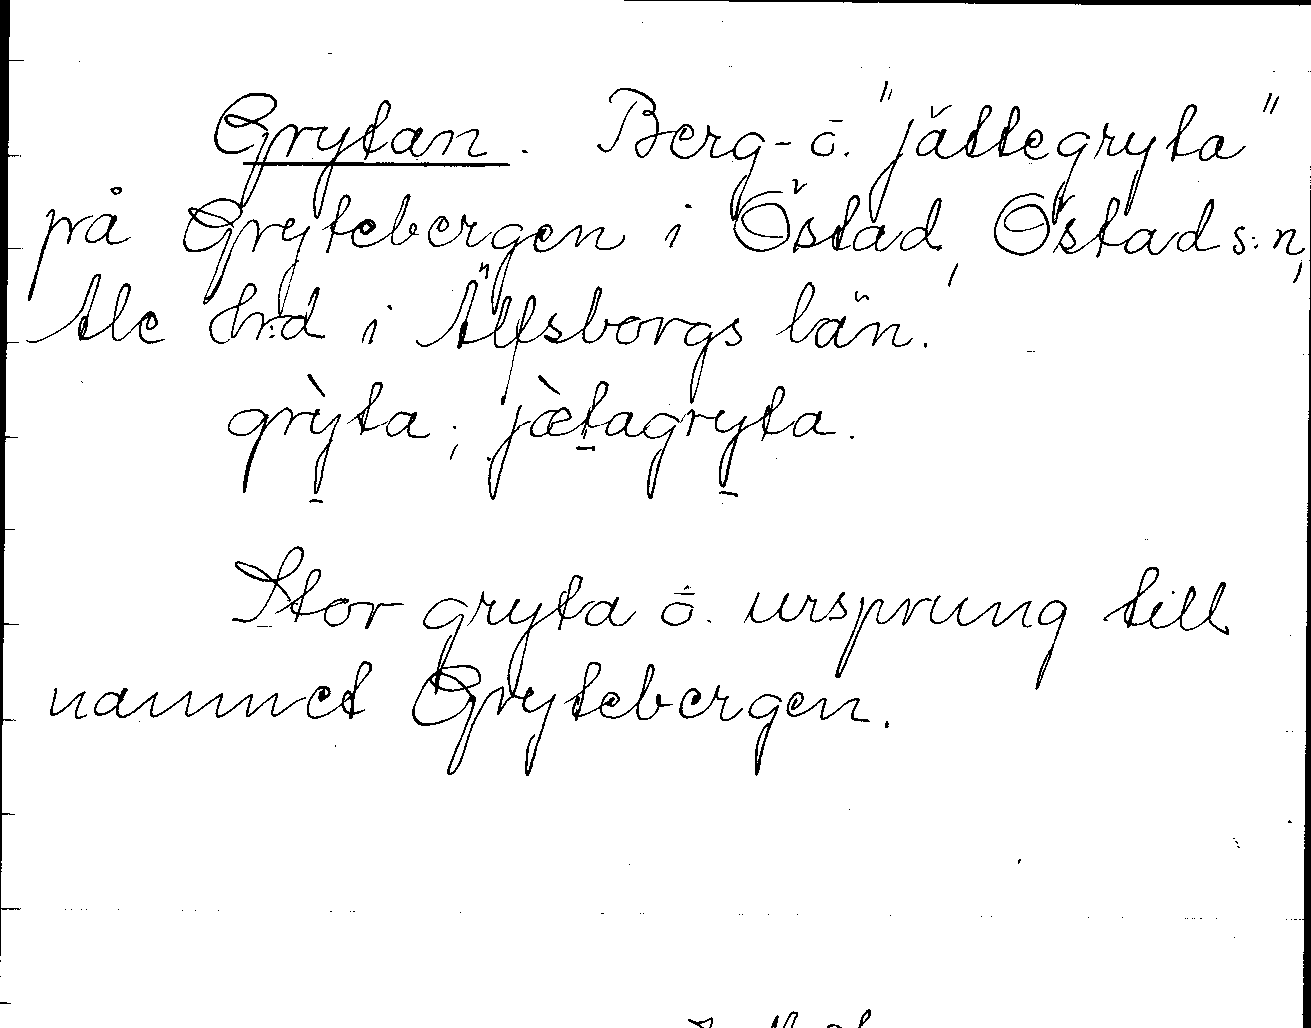 Grytan. Berg- o. "jättegryta"
på Grytebergen i Östad, Östad s:n,
Ale hrd i Älfsborgs län.
grỳta; jæ̀tagryta.
Stor gryta o. ursprung till
namnet Grytebergen.